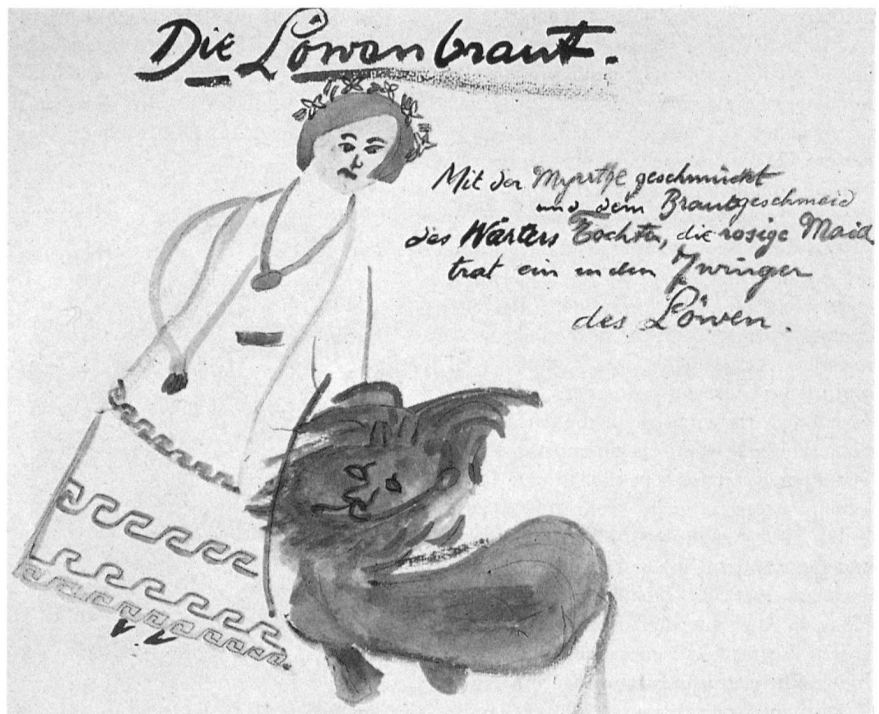 Die Löwenbraut.
Mit der Myrthe geschmückt
und dem Brautgeschmeid
des Wärters Tochter, die rosige Maid
trat ein in den Zwinger
des Löwen.